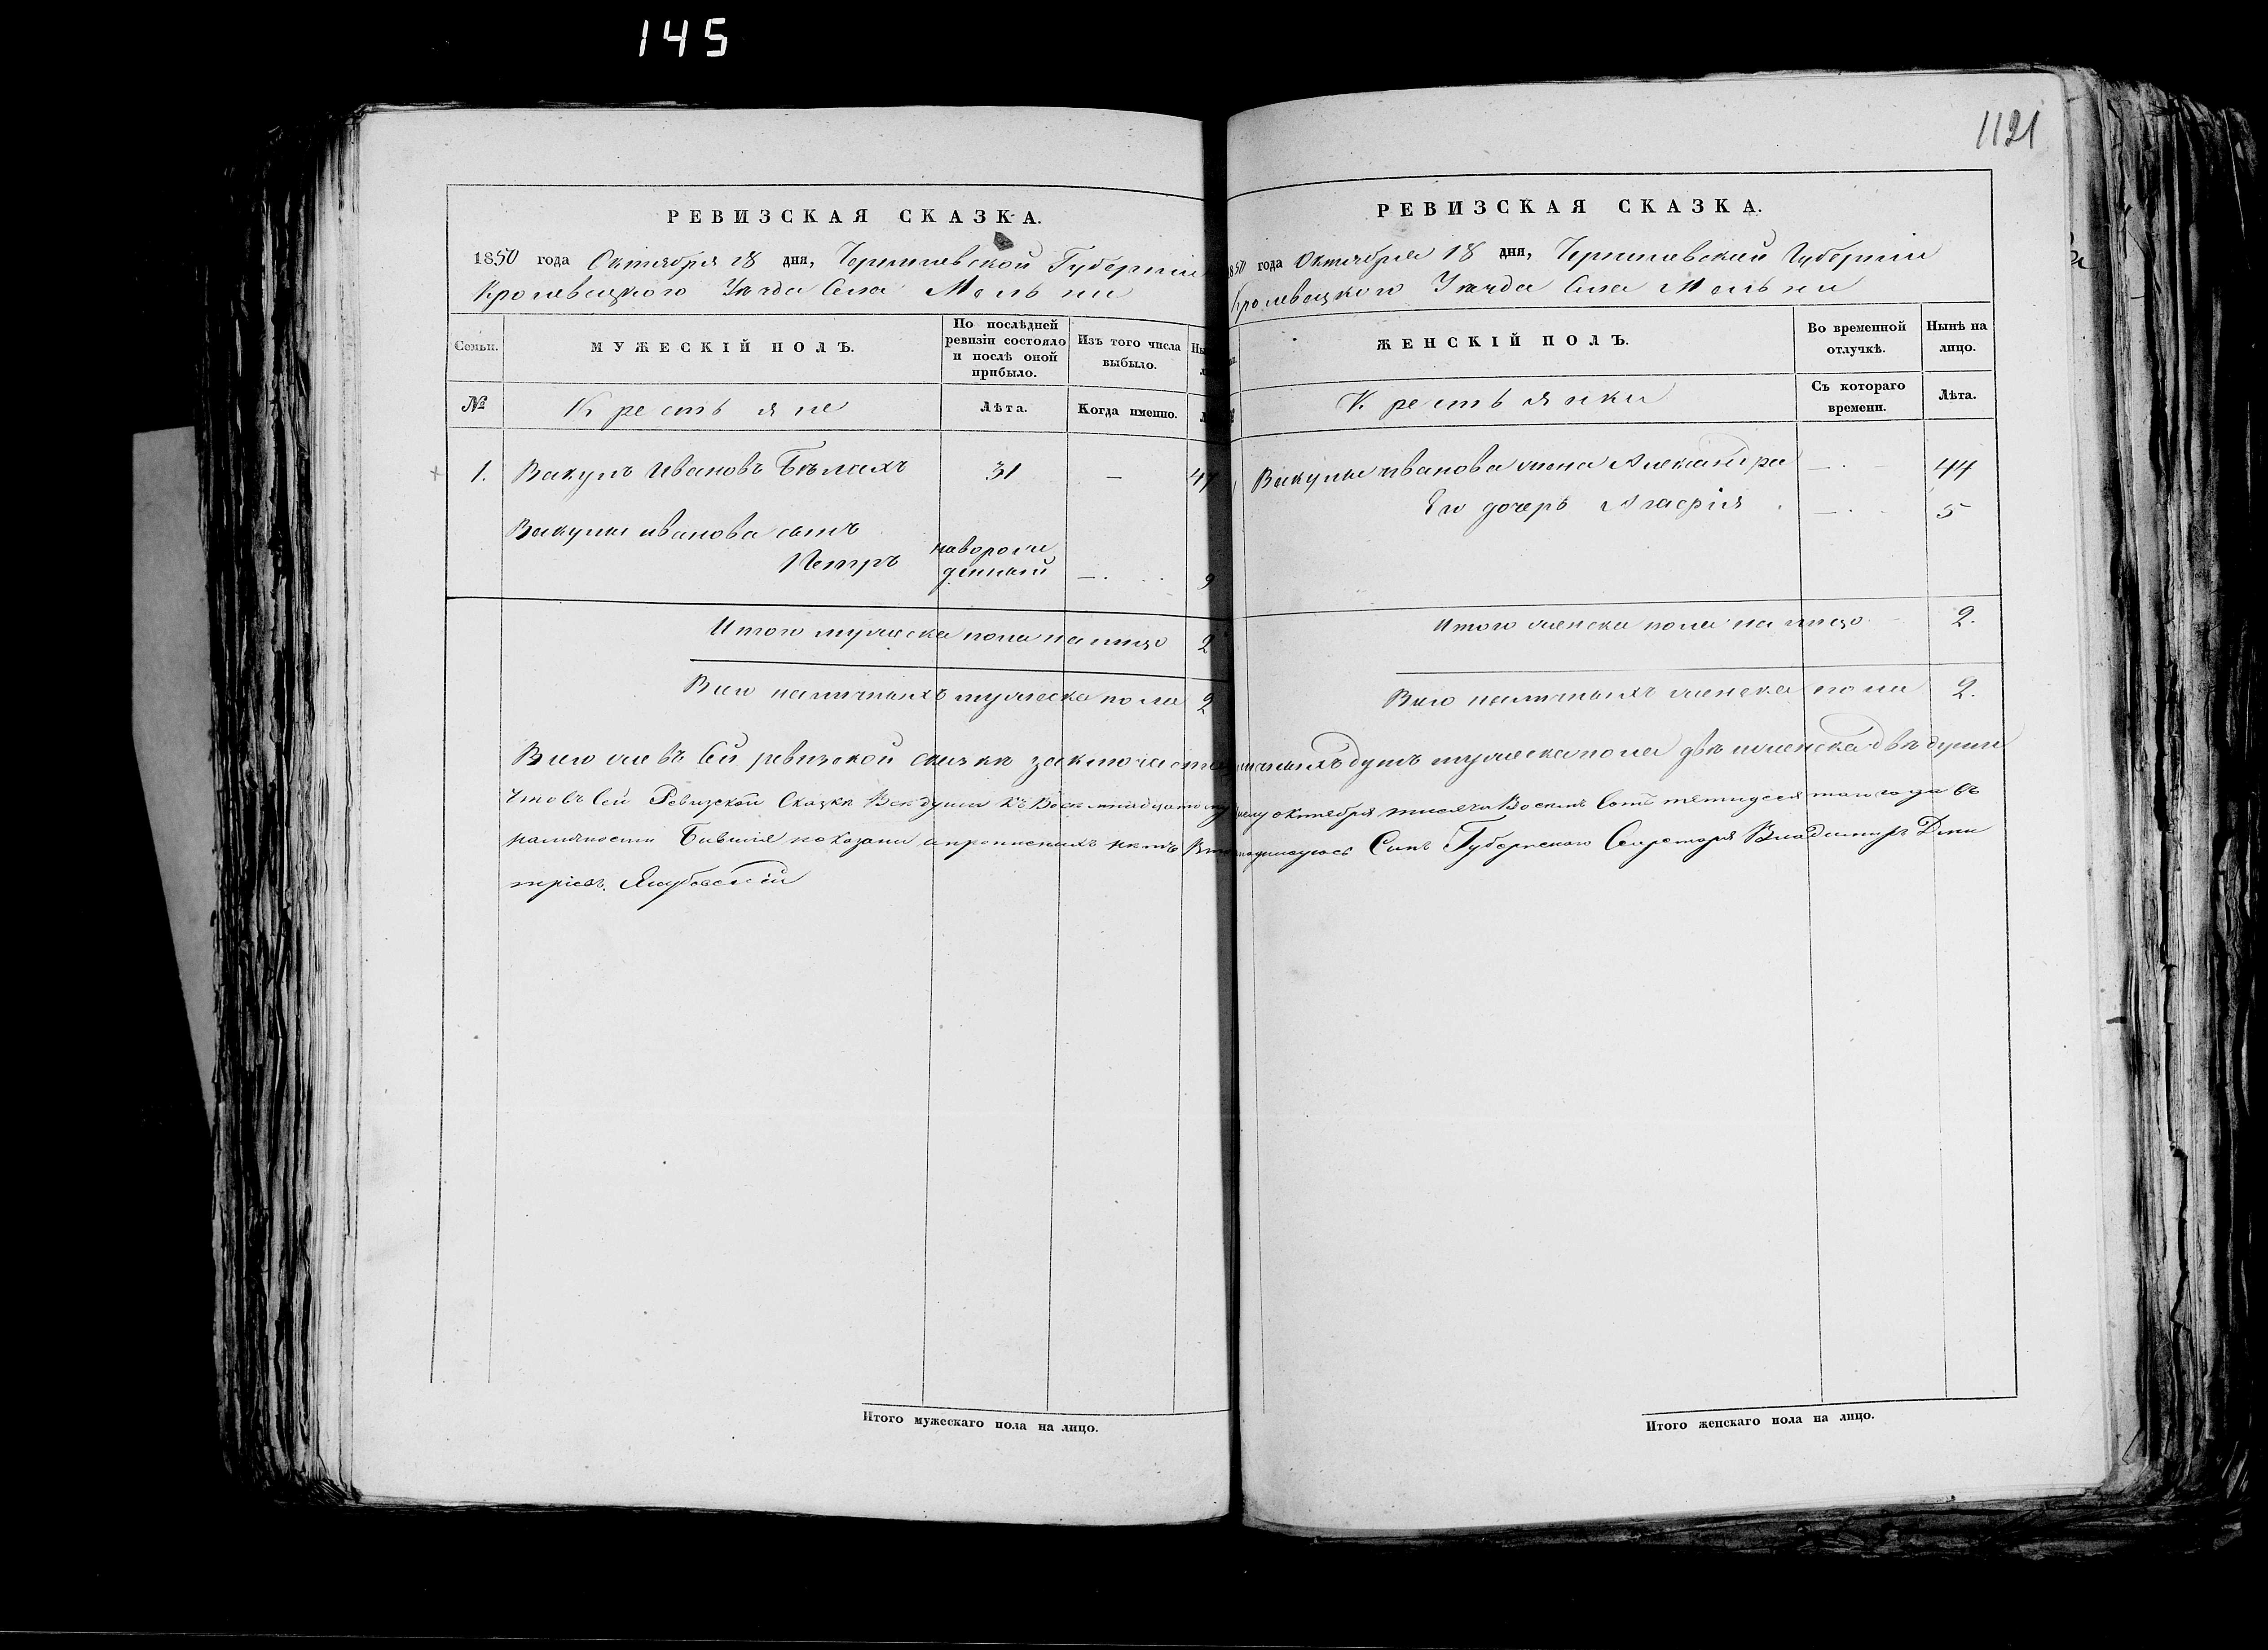 145
1121
РЕВИЗСКАЯ СКАЗКА.
1850 года Октября 18 дня, Черниговской Губернiи
Кролевецкого Уѣзда Села Мельни
Семьи.
МУЖЕСКIЙ ПОЛЪ.
По послѣдней ревизiи состояло и послѣ оной прибыло.
Изъ того числа выбыло.
№
Крестьяне
Лѣта.
Когда именно.
1. Вакулъ Ивановъ Бѣлахъ 31 — 47
Вакулы иванова сынъ
Петръ новорожденный — 9
Итого мужеска пола на лицо 2
Всего наличныхъ мужеска пола 2
РЕВИЗСКАЯ СКАЗКА.
1850 года Октября 18 дня, Черниговской Губернiи
Кролевецкого Уѣзда Села Мельни
ЖЕНСКIЙ ПОЛЪ.
Во временной отлучкѣ.
Нынѣ на лицо.
Крестьянки
Съ котораго времени.
Лѣта.
Вакулы иванова жена Александра — 44
Его дочерь Агафiя — 5
Итого женска пола на лицо 2.
Всего наличныхъ женска пола 2.
Всего же въ Сей ревизской сказкѣ заключается наличныхъ душъ мужеска пола двѣ и женска двѣ души
Что въ Сей Ревизской Сказкѣ Всѣ души къ Восемнадцатому числу октября тисяча Восемь Сотъ пятидесятаго года въ
наличности Бывшiе показаны и прописныхъ нѣтъ В томъ подписуюсь Синъ Губернского Секретаря Владимиръ Дми
трiевъ Якубовскiй
Итого мужескаго пола на лицо.
Итого женскаго пола на лицо.